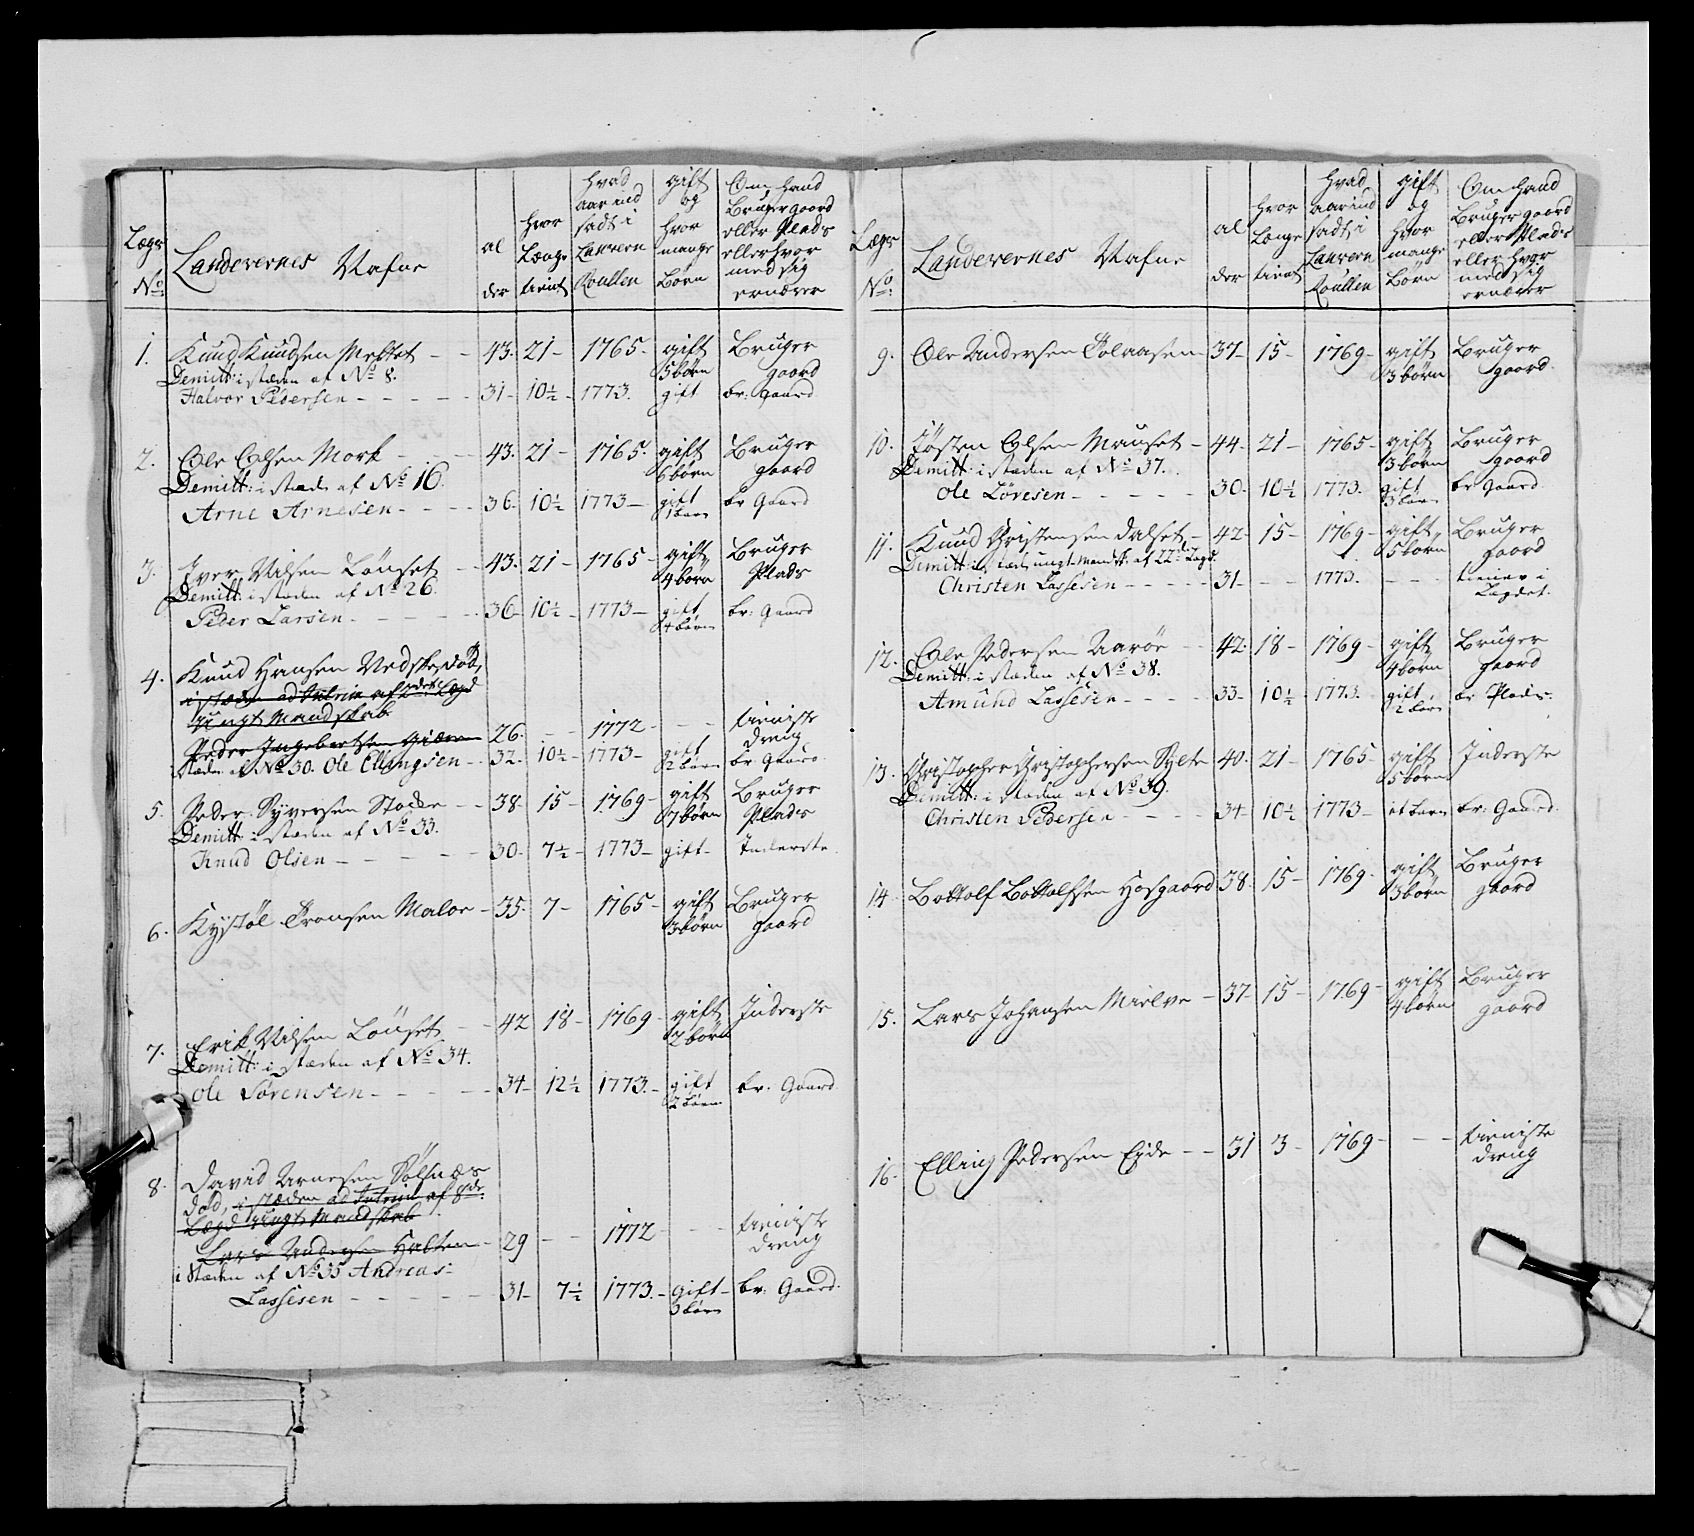 Lægs No: Landevernes Nafne al der hvor Længe tient hvad aar ind sadt i Lanvern Roullen gift og hvor mange Børn Om Hand Bruger gaard eller Plads eller hvor med sig ernærer
1. Knud Knudsen Mestet - - 43. 21- 1765- gift 5 børn Bruger gaard
Demitt: i stæden af No 8.
Halvor Pedersen - - - - - 31- 10½- 1773. gift br: gaard
2. Ole Olsen Mork - - - 43. 21- 1765. gift 6 børn Bruger gaard
Demitt: i stæd: af No 16.
Arne Arnesen - - - - 36. 10½- 1773- gift 1 barn br Gaard
3. Iver Nilsen Lönset - - 43. 21- 1765- gift 4 børn Bruger Plads
Demitt: i stæden af No 26.
Peder Larsen - - - - - 36- 10½- 1773- gift 4 børn br: Gaard
4. Knud Hansen död,
i stæden ad Interim af Lægd
ungt Mandskab
Peder Ingebertsen 26. - - 1772- - - tieniste dreng
Stæden af No 30. Ole Ellingsen - - 32. 10½- 1773- gift 2 børn br. Gaard
5. Peder Syversen - - 38. 15- 1769- gift 7 børn Bruger Plads
Demitt: i stæden af No 33.
Knud Olsen - - - - - 30. 7½- 1773- gift- Inderste
6. Kystøl Tronsen Maloe - 35. 7- 1765- gift 3 børn Bruger gaard
7. Erik Nilsen Lönset - - 42 18- 1769- gift 2 børn Inderste
Demitt: i stæden af No 34.
Ole Sörensen - - - - - 34- 12½ 1773.- gift 2 børn br. Gaard
8. David Arnesen Sølsnæs
död, i stæden ad Interim af 8de
Lægd ungt Mandskab
Lars Andersen Halten - 29 - - 1772 - - tieniste dreng
i Stæden af No 35 Andreas
Lassesen - - - - - 31- 7½ 1773.- gift- 3 børn br. Gaard.
Lægs No: Landevernes Nafne al der hvor Længe tient hvad aar ind sadt i Lanvern Roullen gift og hvor mange Børn Om Hand Bruger gaard eller Plads eller hvor med sig ernærer
9. Ole Andersen Tolaasen 37- 15- 1769- gift 3 børn Bruger gaard
10. Jösten Olsen Mauset - 44- 21- 1765- gift 3 børn Bruger gaard
Demitt: i stæden af No 37.
Ole Löresen - - - - - 30. 10½ 1773. gift børn br gaard
11. Knud Christensen Dalset - 42- 15- 1769- gift 5 børn Bruger gaard
Demitt: i stæd: ungt Mandsk: af 22de Lægd
Christen Lassesen - - - - - 31- - - 1773. - - - tiener i Lægdet.
12. Ole Pedersen Aaröe - - 42. 18- 1769- gift 4 børn Bruger gaard
Demitt: i stæden af No 38.
Amund Lassesen - - - - 33- 10½ 1773. gift børn br Plads-
13. Christopher Christophersen Sylte 40- 21- 1765- gift 5 børn Inderste
Demitt: i stæden af No 39.
Christen Pedersen - - - - 34- 10½ 1773- et barn br: Gaard.
14. Bottolf Bottolfsen Hosgaard 38. 15- 1769- gift 3 børn Bruger gaard
15. Lars Johansen Mielve - 37- 15- 1769- gift 4 børn Bruger gaard
16. Elling Pedersen Eide - - 31 3- 1769- - - tieniste dreng